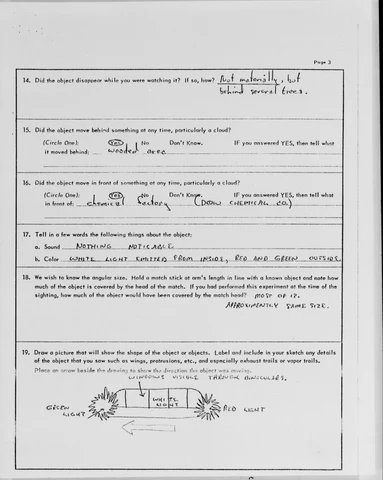 Page 3
14. Did the object disappear while you were watching it? If so, how? Not materially, but
behind several trees.
15. Did the object move behind something at any time, particularly a cloud?
(Circle One): Yes No Don't Know. IF you answered YES, then tell what
it moved behind: wooded area
16. Did the object move in front of something at any time, particularly a cloud?
(Circle One): Yes No Don't Know. IF you answered YES, then tell what
in front of: chemical factory (DOW CHEMICAL CO.)
17. Tell in a few words the following things about the object:
a. Sound NOTHING NOTICABLE
b. Color WHITE LIGHT EMITTED FROM INSIDE, RED AND GREEN OUTSIDE.
18. We wish to know the angular size. Hold a match stick at arm's length in line with a known object and note how
much of the object is covered by the head of the match. If you had performed this experiment at the time of the
sighting, how much of the object would have been covered by the match head? MOST OF IT.
APPROXIMENTLY SAME SIZE.
19. Draw a picture that will show the shape of the object or objects. Label and include in your sketch any details
of the object that you saw such as wings, protrusions, etc., and especially exhaust trails or vapor trails.
Place an arrow beside the drawing to show the direction the object was moving.
WINDOWS VISIBLE THROUGH BINOCULARS.
WHITE
LIGHT
GREEN
LIGHT
RED LIGHT